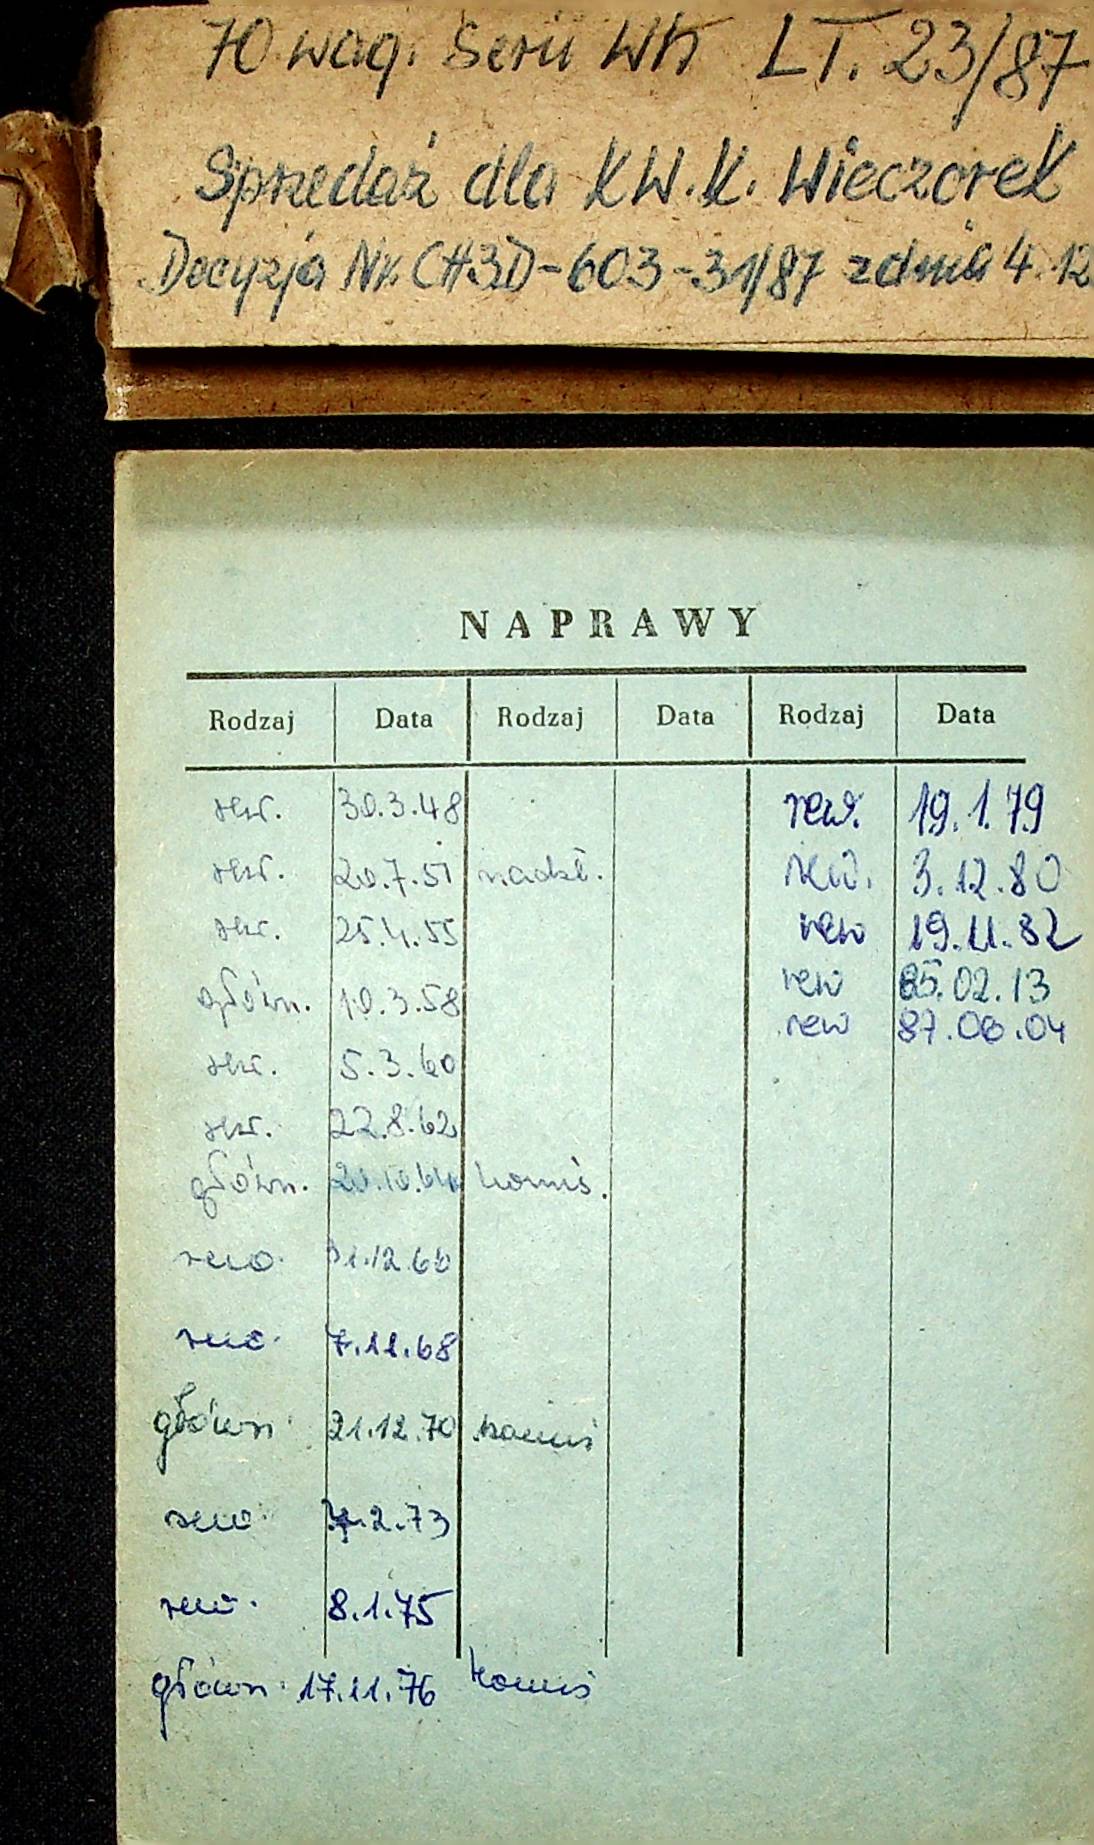 70 wag. Serii Wh LT. 23/87
Sprzedaż dla KW.K. Wieczorek
Decyzja Nr. CH3D-603-31/87 z dnia 4.12
NAPRAWY
Rodzaj Data Rodzaj Data Rodzaj Data
rew. 30.3.48 rew. 19.1.79
rew. 20.7.51 nadzł. rew. 3.12.80
rew. 25.4.55 rew 19.11.82
główn. 10.3.58 rew 85.02.13
rew 87.06.04
rew. 5.3.60
rew. 22.8.62
główn. 20.10.64 komis.
rew. 31.12.66
rew. 7.11.68
główn. 21.12.70 komis
rew. 2.73
rew. 8.1.75
główn. 17.11.76 komis